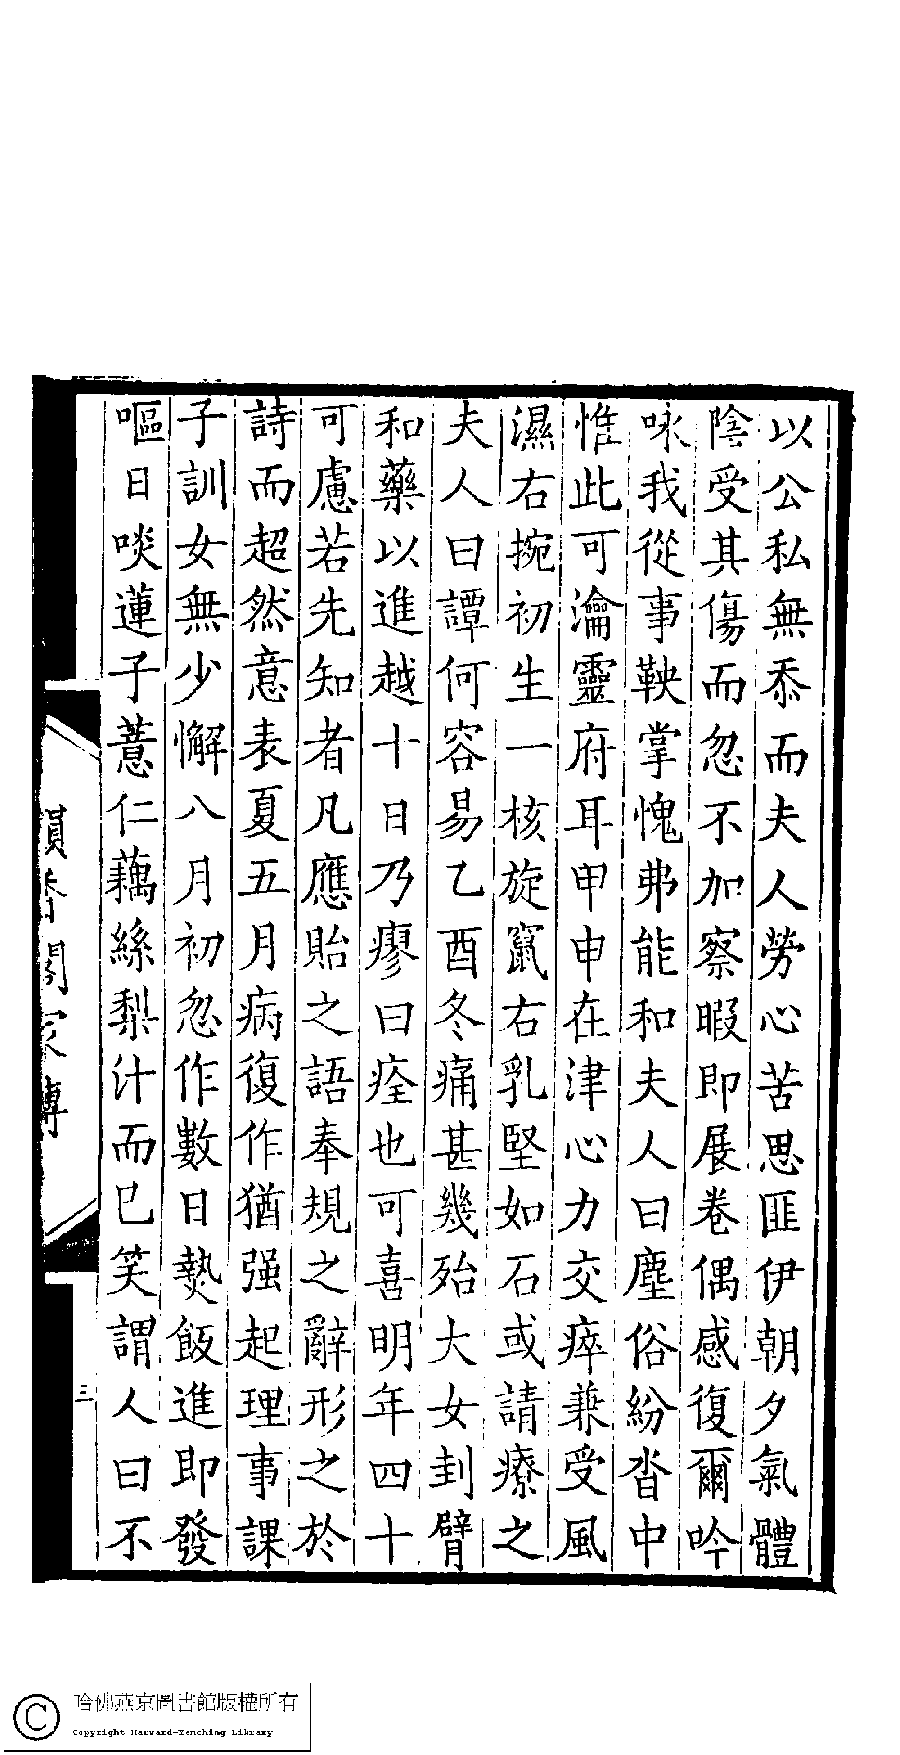 以公私無忝而夫人勞心苦思匪伊朝夕氣體
陰受其傷而忽不加察暇即展卷偶感復爾吟
咏我從事鞅掌愧弗能和夫人曰塵俗紛沓中
惟此可瀹靈府耳甲申在津心力交瘁兼受風
濕右捥初生一核旋竄右乳堅如石或請療之
夫人曰譚何容易乙酉冬痛甚幾殆大女刲臂
和藥以進越十日乃瘳曰痊也可喜明年四十
可慮若先知者凡應貽之語奉規之辭形之於
詩而超然意表夏五月病復作猶强起理事課
子訓女無少懈八月初忽作數日熱飯進即發
嘔日啖蓮子薏仁藕絲梨汁而已笑謂人曰不
韻香閣家傳
三
哈佛燕京圖書館版權所有
Copyright Harvard-Yenching Library